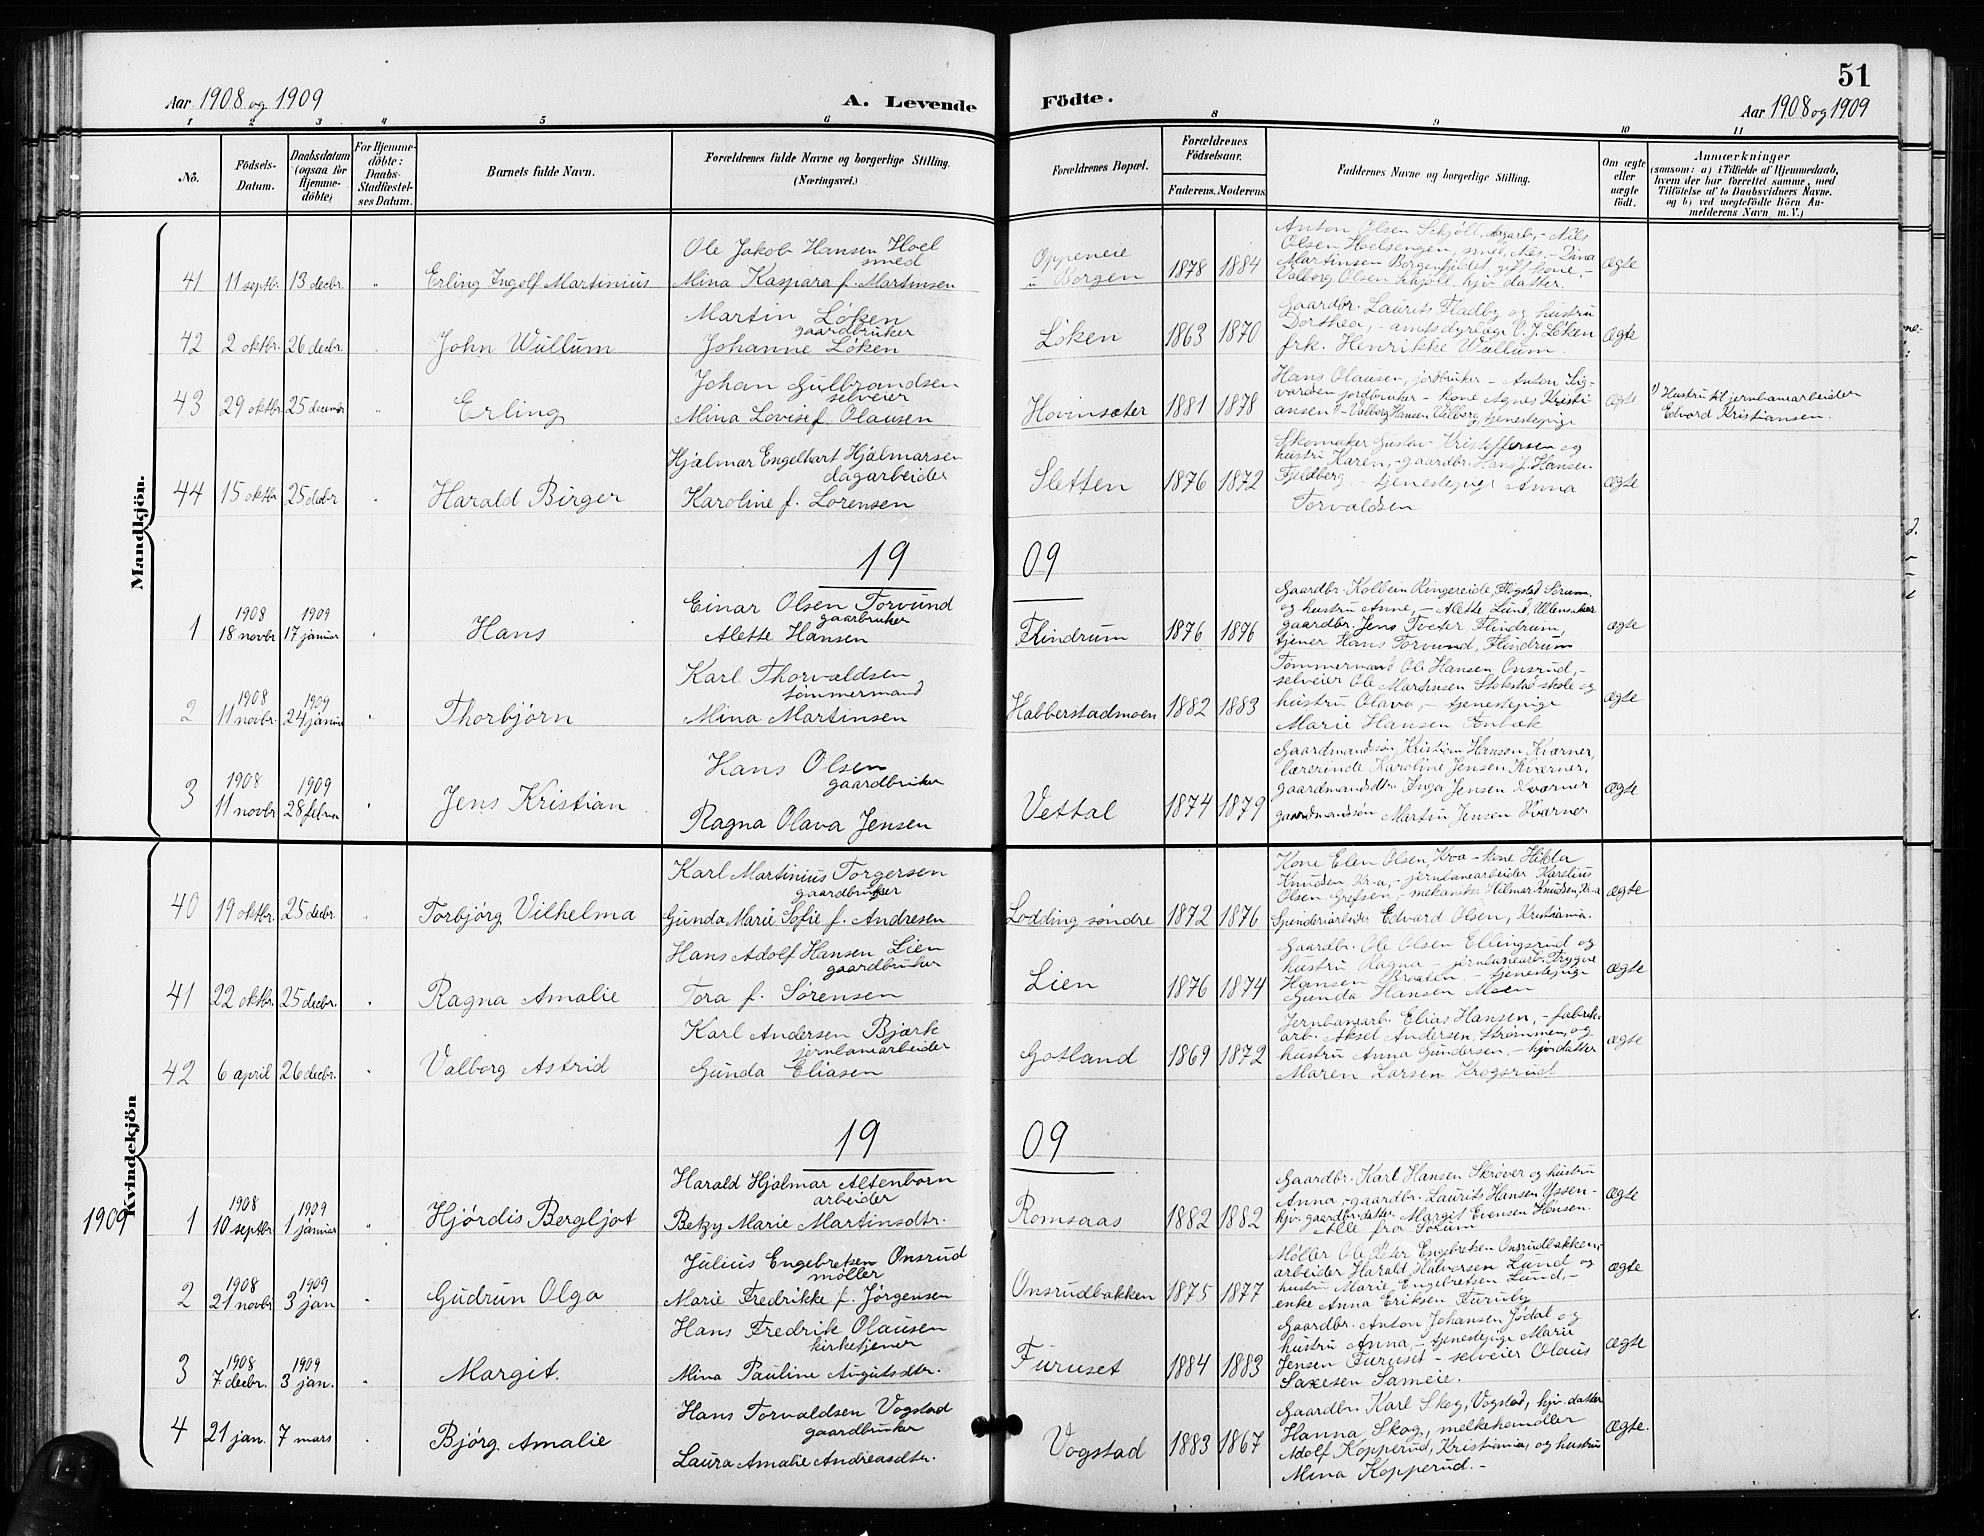 51
Aar 1908 og 1909
A. Levende
Födte.
Aar 1908 og 1909
1 2 3 4 5 6 8 9 10 11
No.
Födsels-Datum.
Daabsdatum (ogsaa for Hjemme-döbte)
For Hjemme-döbte: Daabs-Stadfæstel-ses Datum.
Barnets fulde Navn.
Forældrenes fulde Navne og borgerlige Stilling.
(Næringsvei.)
Forældrenes Bopæl.
Forældrenes Födselsaar.
Faderens. Moderens.
Faddernes Navne og borgerlige Stilling.
Om ægte eller uægte födt.
Anmærkninger
(saasom: a) i Tilfælde af Hjemmedaab,
hvem der har forrettet samme, med
Tilföielse af to Daabsvidners Navne.
og b) ved uægtefödte Börn An-
melderens Navn m. V.)
Mandkjön.
41 11 septbr. 13 decbr. Erling Ingolf Martinius
Ole Jakob Hansen Hoel
smed
Mina Kaspara f. Martinsen
Oppeneie
u Borgen
1878 1884
Anton Olsen Skjöll, dagarb. - Nils
Olsen Hoelsengen, smed, Næs, - Dina
Martinsen Borgenfjeldet, gift kone, -
Valborg Olsen Skjöll, hjv. datter.
Ægte
42 2 oktbr. 26 decbr. John Wullum
Martin Løken
gaardbruker
Johanne Løken
Løken
1863 1870
Gaardbr. Laurits Fladby og hustru
Dorthea, - amtsdyrlæge O. J. Løken
frk. Henrikke Wullum.
Ægte
43 29 oktbr. 25 decembr Erling
Johan Gulbrandsen
selveier
Mina Lovise f. Olausen
Hovinsæter
1881 1878
Hans Olausen, jordbruker - Anton Sig-
vardsen jordbruker - kone Agnes Kristi-
ansen 1) - Valborg Hansen Vilberg, tjenestepige
Ægte
1) Hustru til jernbanearbeider
Edvard Kristiansen.
44 15 oktbr 25 decbr Harald Birger
Hjalmar Engelhart Hjalmarsen
dagarbeider
Karoline f. Lorensen
Sletten
1876 1872
Skomaker Gustav Kristoffersen og
hustru Karen, - gaardbr. Hans J. Hansen
Fjeldberg - tjenestepige Anna
Torvaldsen
Ægte
19 09
1 1908 18 novbr 1909 17 januar Hans
Einar Olsen Torvund
gaarbruker
Alette Hansen
Flindrum
1876 1876
Gaardbr. Kolbein Ringereide, Flogstad Sørum
og hustru Anne, - Alette Lund, Ullensaker
gaardbr. Jens Tveter Flindrum,
tjener Hans Torvund, Flindrum
Ægte
2 1908 11 novbr. 1909 24 januar Thorbjørn
Karl Thorvaldsen
tømmermand
Mina Martinsen
Habberstadmoen
1882 1883
Tømmermand Ole Hansen Onsrud, -
selveier Ole Martinsen Stokstad skole og
hustru Olava, - tjenestepige
Marie Hansen Fonbæk
Ægte
3 1908 11 novbr 1909 28 februar Jens Kristian
Hans Olsen
gaardbruker
Ragna Olava Jensen
Vettal
1874 1879
Gaardmandssøn Kristian Hansen Kværner,
lærerinde Karoline Jensen Kværner,
gaardmandsdtr. Inga Jensen Kværner
gaardmandssøn Martin Jensen Kværner
Ægte
Kvindekjön
40 19 oktbr. 25 decbr. Torbjørg Vilhelma
Karl Martinius Torgersen
gaardbruker
Gunda Marie Sofie f. Andresen
Lodding søndre
1872 1876
Kone Elen Olsen, Kr.a - kone Hilda
Knudsen, Kr-a, - jernbanearbeider Karelius
Olsen Grefsen, - mekaniker Hilmar Knudsen, Kr-a
Edvard Olsen, Kristiania.
Ægte
41 22 oktbr. 25 decbr. Ragna Amalie
Hans Adolf Hansen Lien
gaardbruker
Tora f. Sørensen
Lien
1876 1874
Gaardbr. Ole Olsen Ellingsrud og
hustru Ragna - jernbanearb. Trygve
Hansen Braaten - tjenestepige
Gunda Hansen Moen
Ægte
42 6 april 26 decbr. Valborg Astrid
Karl Andersen Bjærk
jernbanearbeider
Gunda Eliasen
Gotland
1869 1872
Jernbanearb. Elias Hansen, - fabrik-
arb. Aksel Andersen, Strømmen, og
hustru Anna Gundersen, - hjv. datter
Maren Larsen Krogsrud
Ægte
19 09
1909
1 1908 10 septbr. 1909 1 januar Hjørdis Bergljot
Harald Hjalmar Altenborn
arbeider
Betzy Marie Martinsdtr.
Romsaas
1882 1882
Gaardbr. Karl Hansen Skrøver og hustru
Anna, - gaardbr. Laurits Hansen Yssen -
hjv. gaardbr. datter Margit Evensen Hansen.
Alle fra Sørum
Ægte
2 1908 21 novbr 1909 3 jan Gudrun Olga
Julius Engebretsen Onsrud
møller
Marie Fredrikke f. Jørgensen
Onsrudbakken
1875 1877
Møller Ole Peter Engebretsen Onsrudbakken,
arbeider Harald Halvorsen Lund og
hustru Marie Engebretsen Lund, -
enke Anna Eriksen Furuly
Ægte
3 1908 7 decbr. 1909 3 jan. Margit.
Hans Fredrik Olausen
kirketjener
Mina Pauline Augutsdtr.
Furuset
1884 1883
Gaardbr. Anton Johansen Jødal og
hustru Anna, - tjenestepige Marie
Jensen Furuset - selveier Olaus
Saxesen Sameie.
Ægte
4 21 jan. 7 mars Bjørg Amalie
Hans Torvaldsen Vogstad
gaardbruker
Laura Amalie Andreasdtr.
Vogstad
1883 1867
Gaardbr. Karl Skog, Vogstad, hjv. datter
Hanna Skog, melkehandler
Adolf Kopperud, Kristiania, og hustru
Mina Kopperud. -
Ægte.